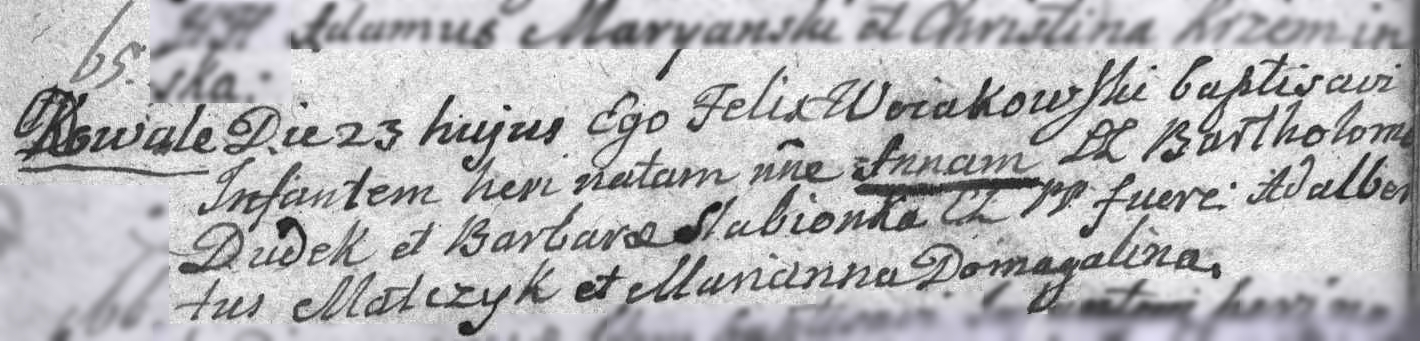 Adamus Maryanski et Christina Krzemin
ska.
65.
Kowale Die 23 hujus Ego Felix Woiakowski baptisavi
Infantem heri natam nne Annam LL Bartholome
Dudek et Barbara Slabionka CL PP fuere: Adalber
tus Malczyk et Marianna Domagalina.